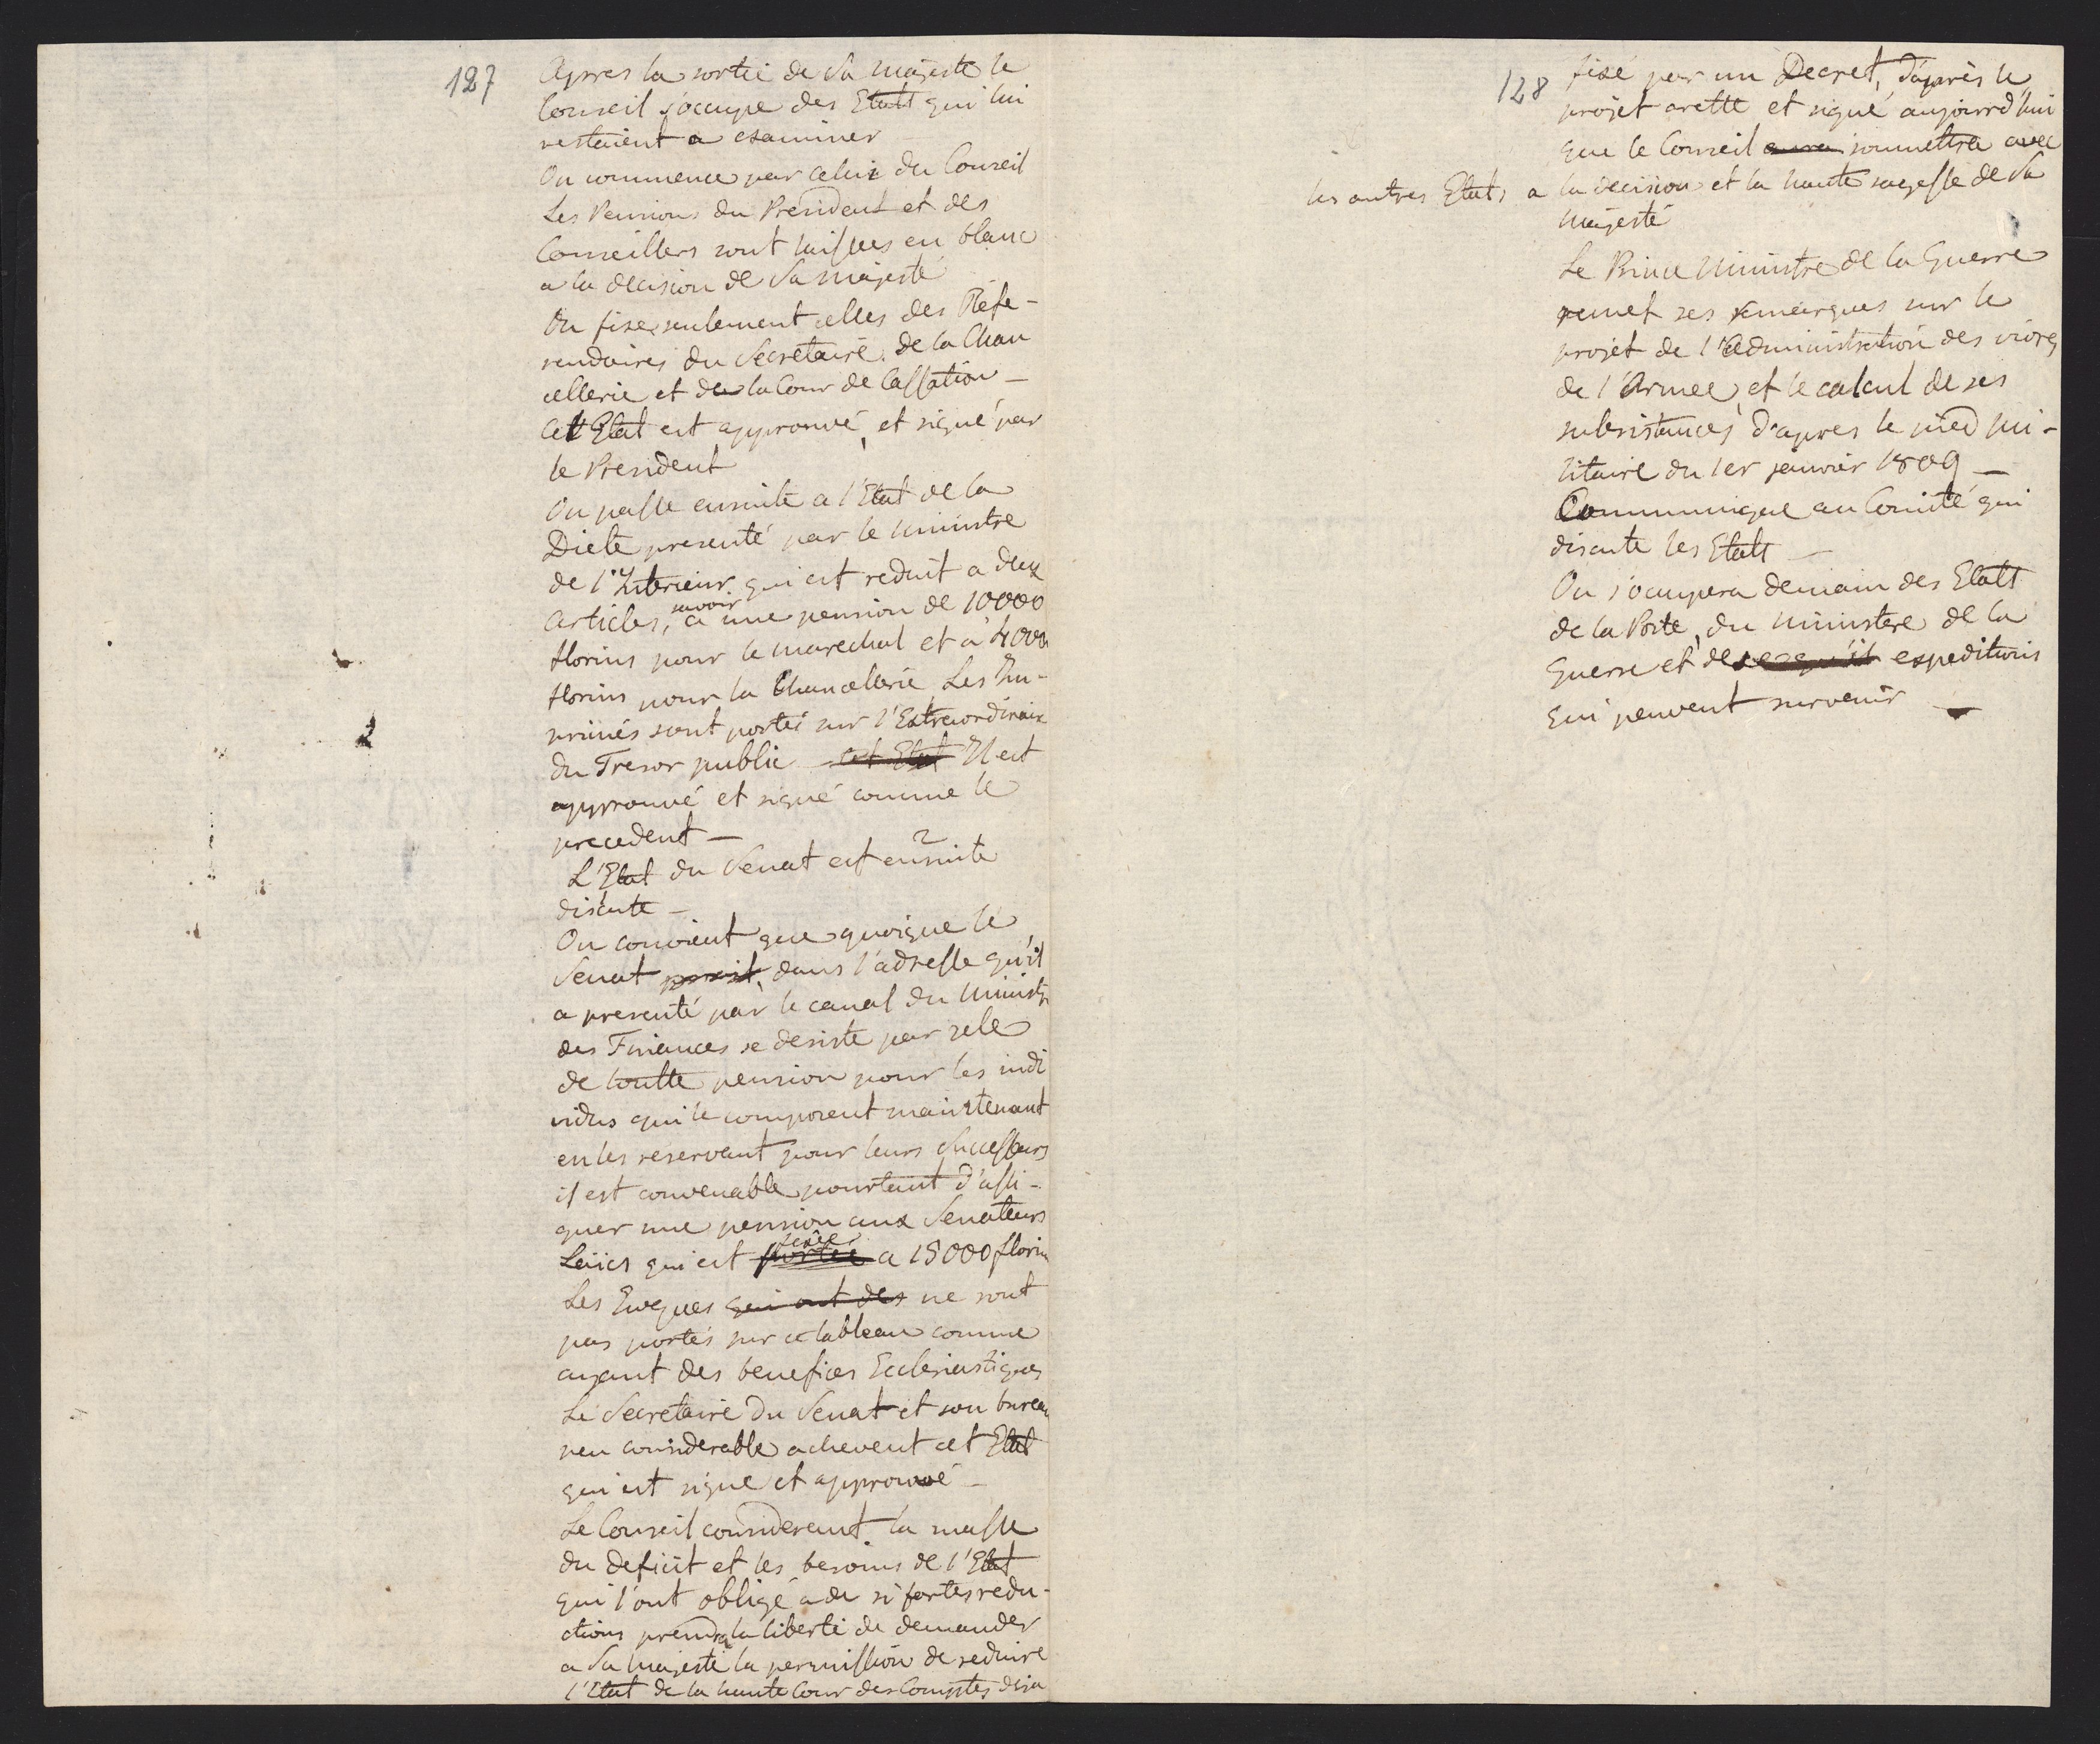 127
Apres la sortie de Sa Majesté le
Conseil s'occupe des Etats qui lui
restaient a examiner
On commence par celui du Conseil
Les Pensions du President et des
Conseillers sont laissees en blanc
a la decision de Sa Majesté
On fixe seulement celles des Refe-
rendaires du Secretaire de la Chan
cellerie et de la Cour de Cassation —
Cet Etat est approuvé, et signé par
le President
On passe ensuite a l'Etat de la
Diete presenté par le Ministre
de l'Interieur qui est reduit a deux
articles, savoir a une pension de 10000
florins pour le marechal et à 4000
florins pour la Chancellerie Les Im-
primés sont portés sur l'Extraordinaire
du Tresor public cet Etat Il est
approuvé et signé comme le
precedent —
2
L'Etat du Senat est ensuite
discute —
On convient que quoique le
Senat dans l'adresse qu'il
a presenté par le canal du Ministre
des Finances se desiste par zele
de toutte pension pour les indi
vidus qui le composent maintenant
en les reservant pour leurs Successeurs
il est convenable pourtant d'assi-
gner une pension aux Senateurs
Laïcs qui est portée fixée a 15000 florin
Les Eveques qui ont des ne sont
pas portés sur ce tableau comme
ayant des benefices Ecclesiastiques
Le Secretaire du Senat et son bureau
peu considerable achevent cet Etat
qui est signe et approuvé —
Le Conseil considerant la masse
du deficit et les besoins de l'Etat
qui l'ont obligé a de si fortes redu-
ctions prendra la liberté de demander
a Sa Majesté la permission de reduire
l'Etat de la haute Cour des Comptes deja
128
fixé par un Decret, d'après le
projet aretté et signé aujourd'hui
que le Conseil aura soumettra avec
les autres Etats a la decision et la haute sagesse de Sa
Majesté
Le Prince Ministre de la Guerre
remet ses remarques sur le
projet de l'Administration des vivres
de l'Armee, et le calcul de ses
subsistances d'apres le pied mi-
litaire du 1er janvier 1809 —
Communiqué au Comité qui
discute les Etats —
On s'occupera demain des Etats
de la Poste, du Ministere de la
Guerre et des expeditions
qui peuvent survenir —